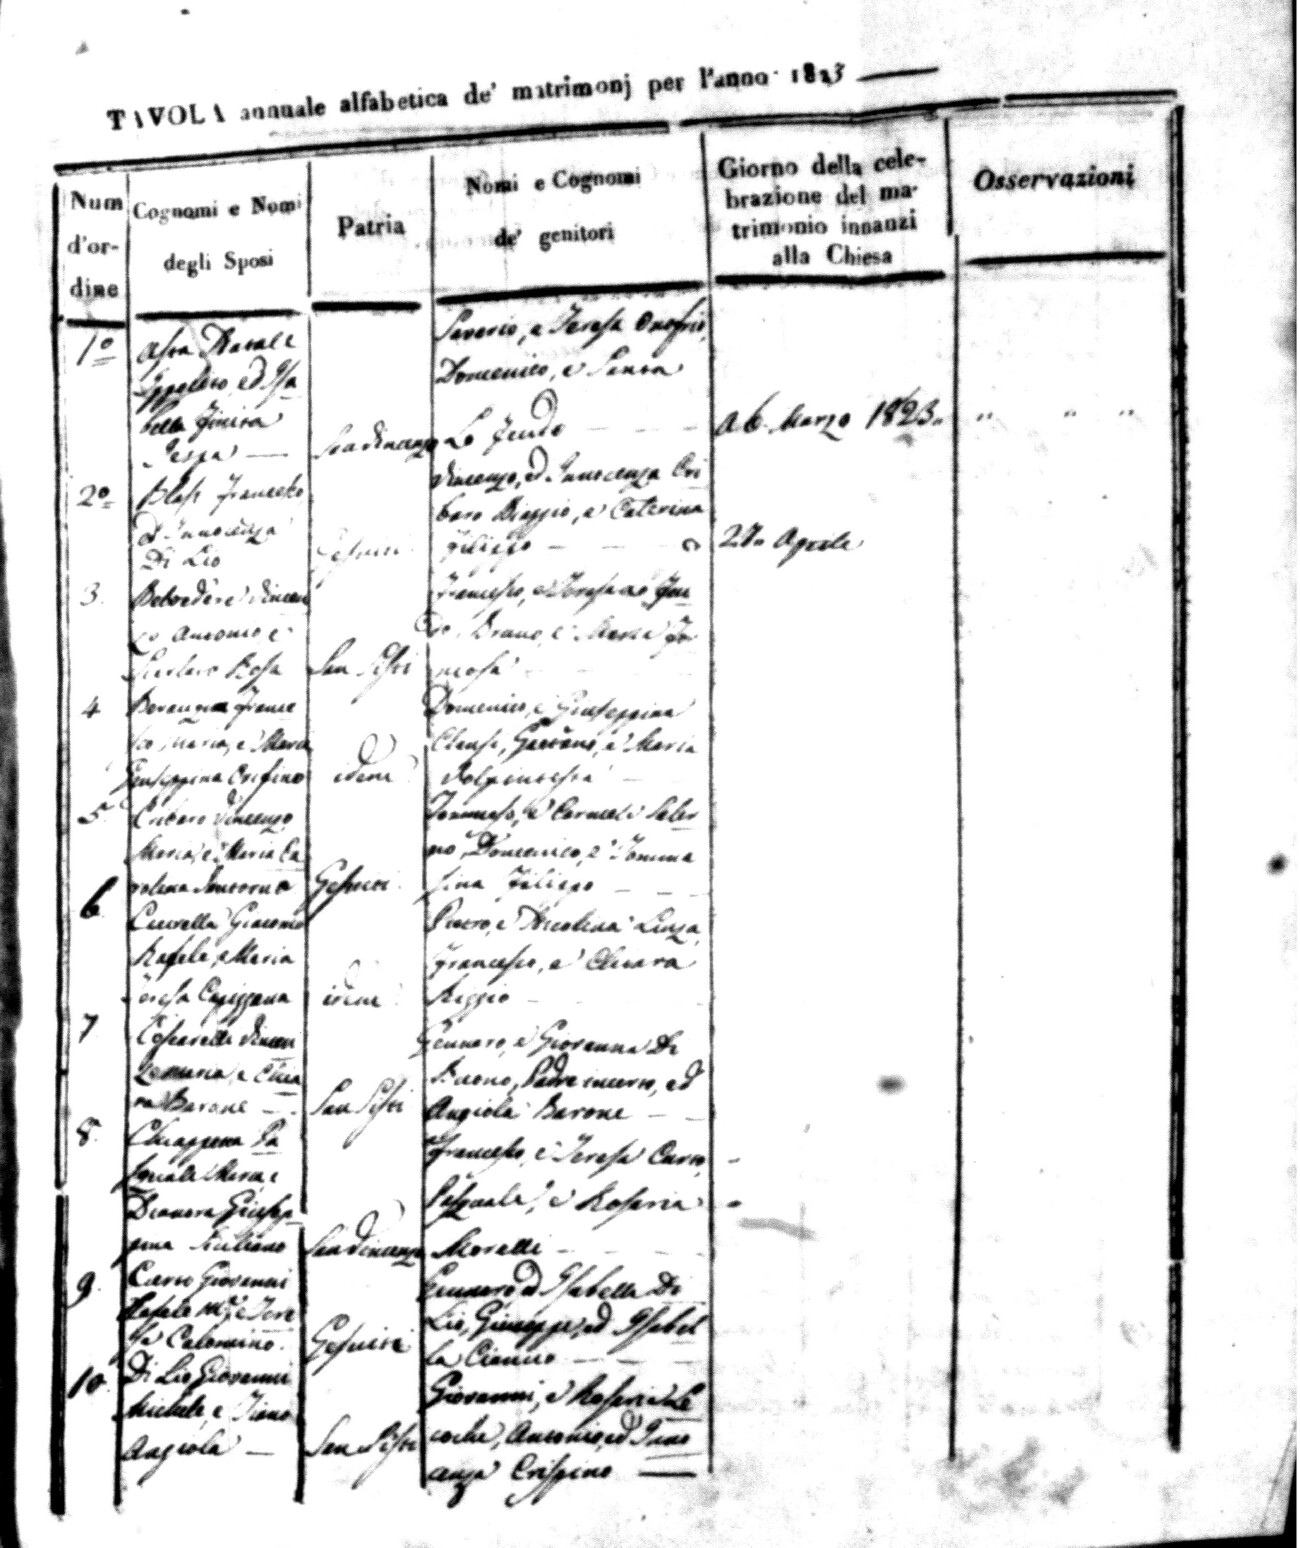 TAVOLA annuale alfabetica de' matrimonj per l'anno 1823
Num d'ordine
Cognomi e Nomi
degli Sposi
Patria
Nomi e Cognomi
de' genitori
Giorno della cele-
brazione del ma-
trimonio innanzi
alla Chiesa
Osservazioni
1º
Natale
Ippolito, ed Isa
bella
Saverio, e Teresa Onofrio,
Domenico, e Santa
Lo Feudo
San Vincenzo
a 6. Marzo 1823.
" " "
2º
Blasi Francesco
ed Innocenza
Di Lio
Gesuiti
Vincenzo, ed Innocenza Cri
baro Biaggio, e Caterina
Filippo
27. Aprile
3.
Belvedere Vincen
zo Antonio e
Rosa
San Sisti
Francesco, e Teresa Lo Feu
do, Bruno, e Maria Fa
mosa
4
Francesco
Maria, e Maria
Giuseppina Orifino
idem
Domenico, e Giuseppina
Gaetano, e Maria
Volpintesta
5.
Cribaro Vincenzo
Maria, e Maria Ca
rolina Santoro
Gesuiti
Tommaso, e Carmela Saler
no, Domenico, e Tomma
sina Filippo
6.
Ciurella Giacomo
Rafele, e Maria
Teresa Capizzana
idem
Pietro, e Nicolina Linza,
Francesco, e Chiara
Riggio
7
Coscarella Vincen
zo Maria, e Chia
ra Barone
San Sisti
Gennaro, e Giovanna De
Buono, Padre incerto, ed
Angiola Barone
8.
Chiappetta Pa
squale Maria e
Dianora Giusep
pina Siciliano
San Vincenzo
Francesco, e Teresa Curso,
Pasquale, e Rosaria
Morelli
9.
Curso Giovanni
Rafele Mª. e Tere
sa Calomino.
Gesuiti
Gennaro ed Isabella Di
Lio, Giuseppe, ed Isabel
la Ciancio
10.
Di Lio Giovanni
Michele, e
Angiola
San Sisti
Giovanni, e Rosaria Le
coche, Antonio, ed Inno
cenza Crispino